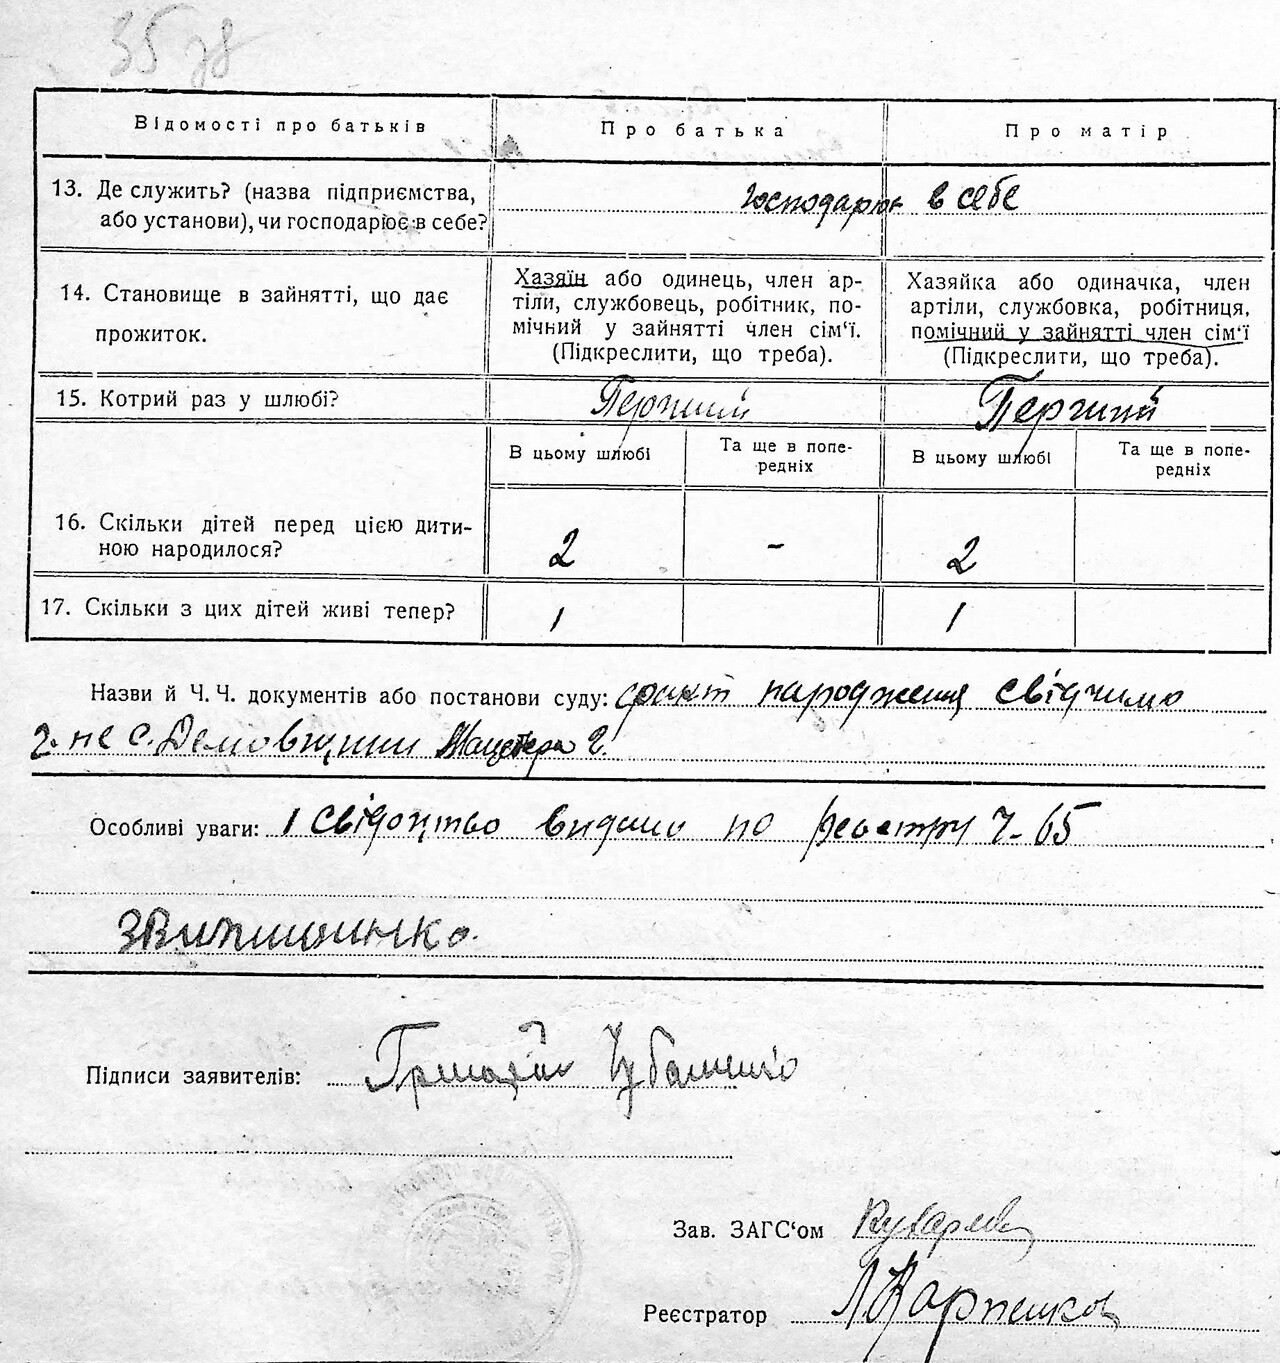 35 зв
Відомості про батьків
Про батька
Про матір
13. Де служить? (назва підприємства,
або установи), чи господарює в себе?
господарює в себе
14. Становище в зайнятті, що дає
прожиток.
Хазяїн або одинець, член ар-
тіли, службовець, робітник, по-
мічний у зайнятті член сім‘ї.
(Підкреслити, що треба).
Хазяйка або одиначка, член
артіли, службовка, робітниця,
помічний у зайнятті член сім‘ї
(Підкреслити, що треба).
15. Котрий раз у шлюбі?
Перший
Перший
В цьому шлюбі
Та ще в попе-
редніх
В цьому шлюбі
Та ще в попе-
редніх
16. Скільки дітей перед цією дити-
ною народилося?
2
-
2
17. Скільки з цих дітей живі тепер?
1
1
Назви й Ч. Ч. документів або постанови суду: факт народження
с.
Особливі уваги: 1 свідоцтво видано по реєстру Ч-65
Підписи заявителів:
Зав. ЗАГС‘ом
Реєстратор Карпенко